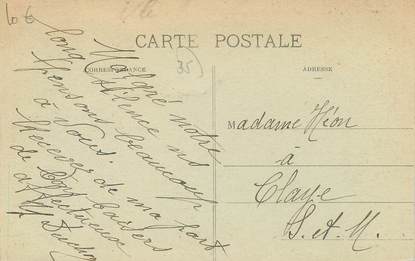 10 €
CARTE POSTALE
CORRESPONDANCE
35
ADRESSE
Malgré notre
long silence ns
pensons beaucoup
à vous.
Recevez de ma part
de Bons Baisers
affectueux
Madame Héon
à
Claye
S. et M.